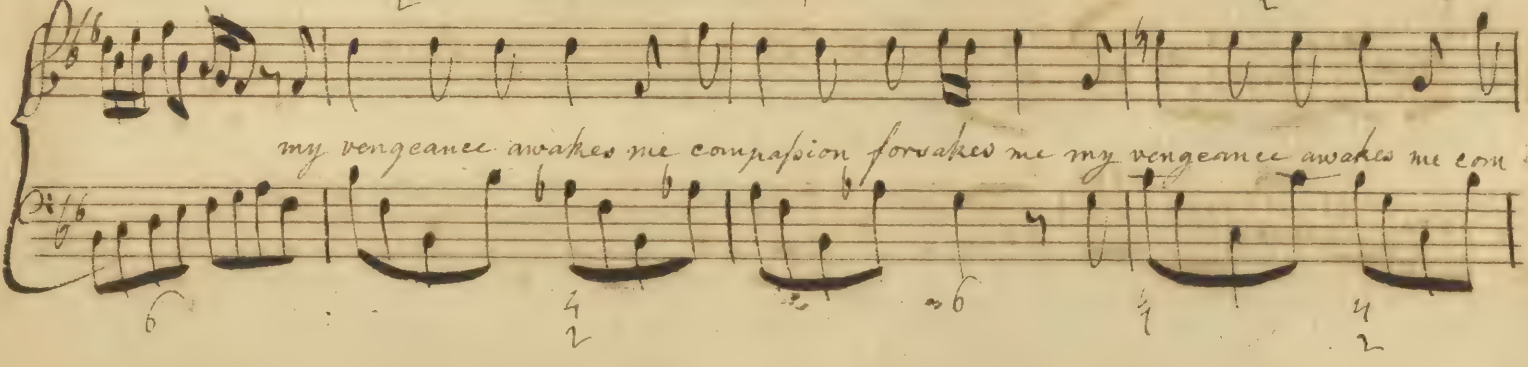 my vengeance awakes me compaſsion forsakes me my vengeance awakes me com
6 4 6 4 4
2 2